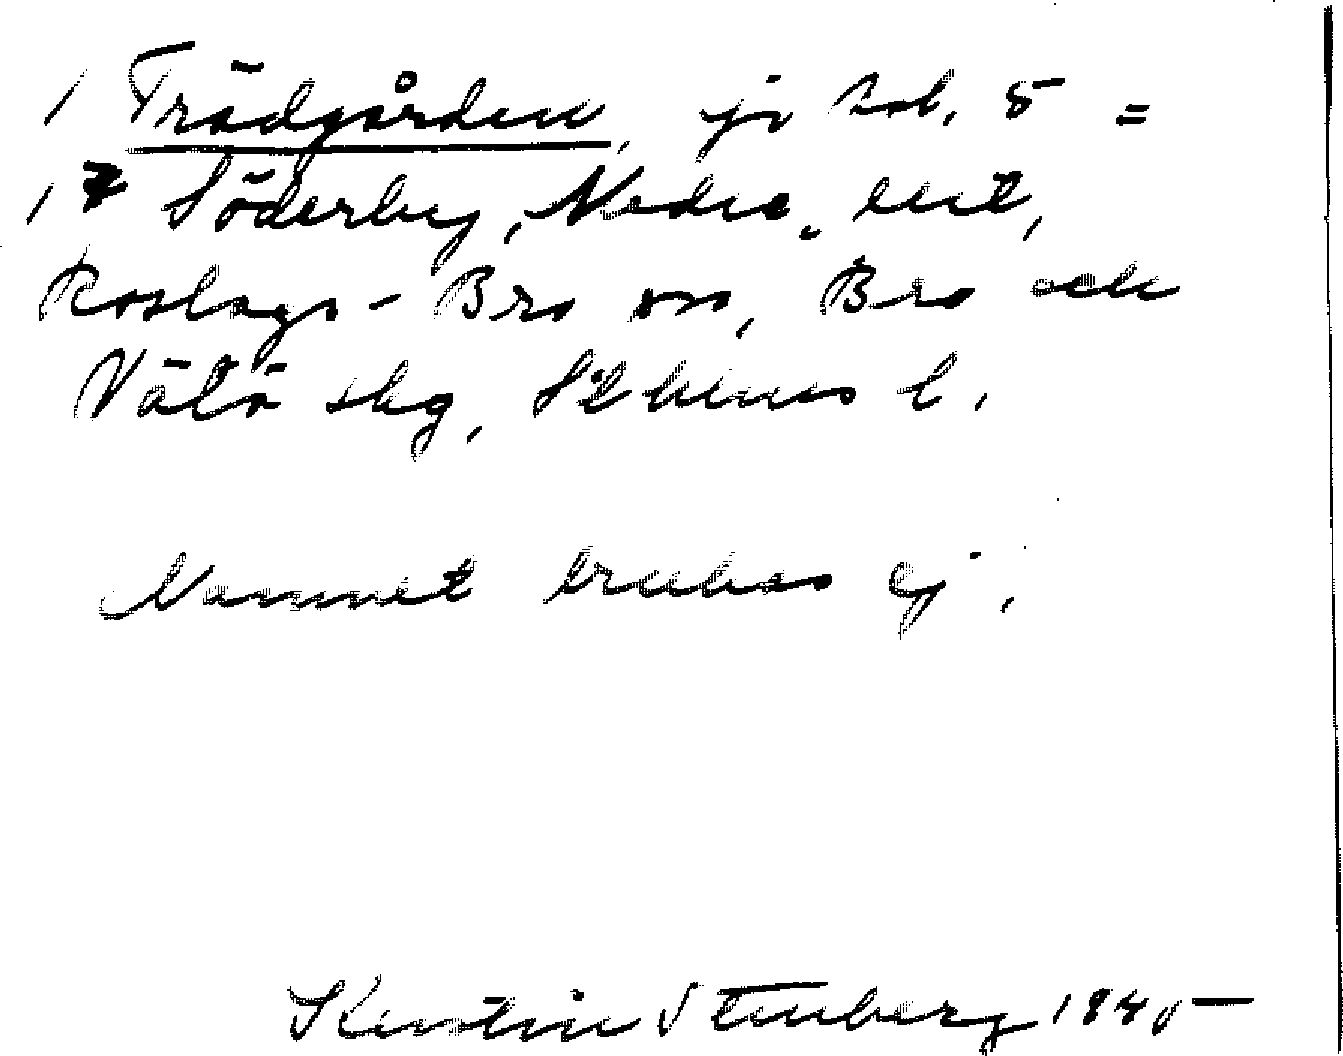 / Trädgården, jr tab. 5 =
/ 7 Söderby, Nedre, enl,
Roslags-Bro sn, Bro och
Vätö skg, Sthlms l.
Namnet brukas ej.
Kerstin Stenberg 1945